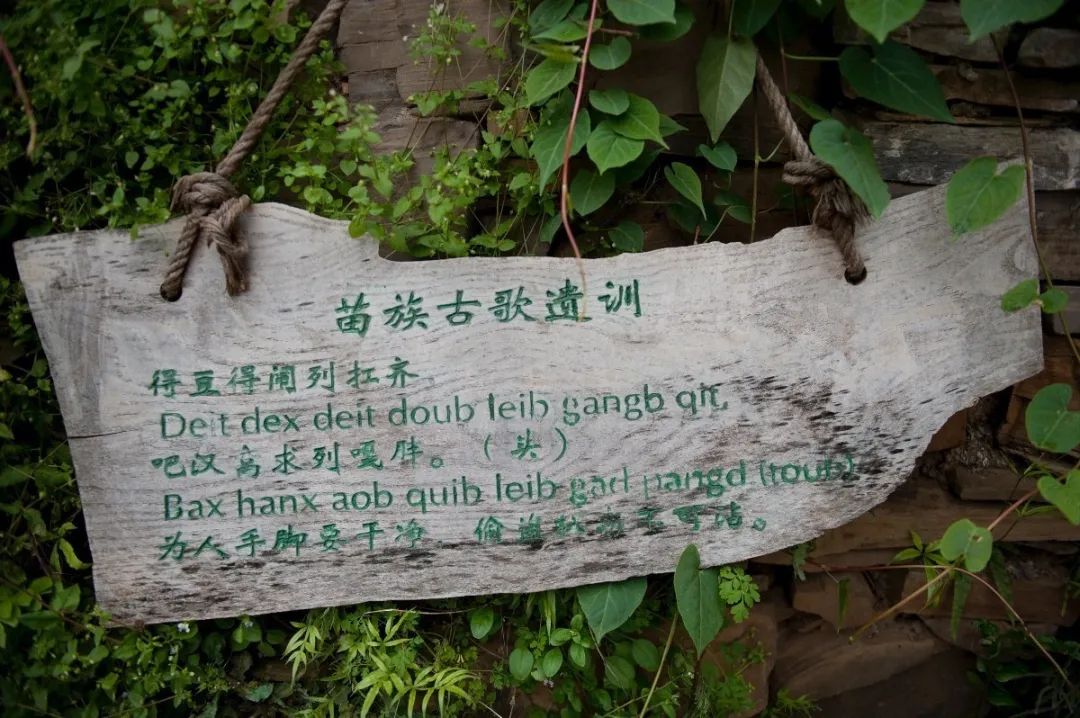 苗族古歌遗训
得豆得闹列扛齐
Deit dex deit doub leib gangb qit,
吧汉离求列嘎胖。（头）
Bax hanx aob quib leib gad pangd (toub)
为人手脚要干净，偷盗 不可沾。